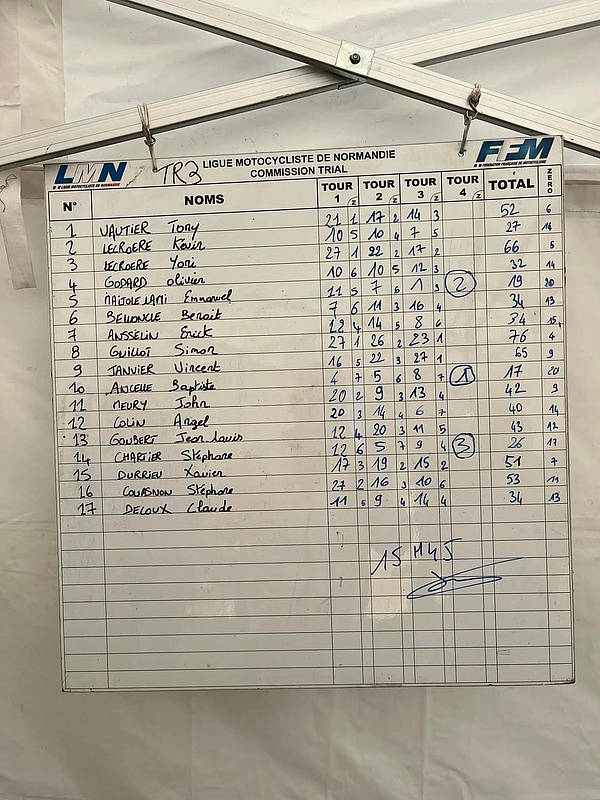 LMN
LIGUE MOTOCYCLISTE DE NORMANDIE
TR3
LIGUE MOTOCYCLISTE DE NORMANDIE
COMMISSION TRIAL
FFM
FÉDÉRATION FRANÇAISE DE MOTOCYCLISME
N° NOMS TOUR 1 Z TOUR 2 Z TOUR 3 Z TOUR 4 Z TOTAL ZERO
1 VAUTIER Tony 21 1 17 2 14 3 52 6
2 LECROERE Kévin 10 5 10 4 7 5 27 14
3 LECROERE Yoni 27 1 22 2 17 2 66 5
4 GODARD Olivier 10 6 10 5 12 3 32 14
5 MAITOLE LAMI Emmanuel 11 5 7 6 1 9 2 19 20
6 BELLONCLE Benoit 7 6 11 3 16 4 34 13
7 ANSSELIN Erick 12 4 14 5 8 6 34 15
8 GUILLOT Simon 27 1 26 2 23 1 76 4
9 JANVIER Vincent 16 5 22 3 27 1 65 9
10 ANCELLE Baptiste 4 7 5 6 8 7 1 17 20
11 MEURY John 20 2 9 3 13 4 42 9
12 COLIN Angel 20 3 14 4 6 7 40 14
13 GOUBERT Jean Louis 12 4 20 3 11 5 43 12
14 CHARTIER Stéphane 12 6 5 7 9 4 3 26 17
15 DURRIEU Xavier 17 3 19 2 15 2 51 7
16 COUASNON Stéphane 27 2 16 3 10 6 53 11
17 DECOUX Claude 11 5 9 4 14 4 34 13
15H45